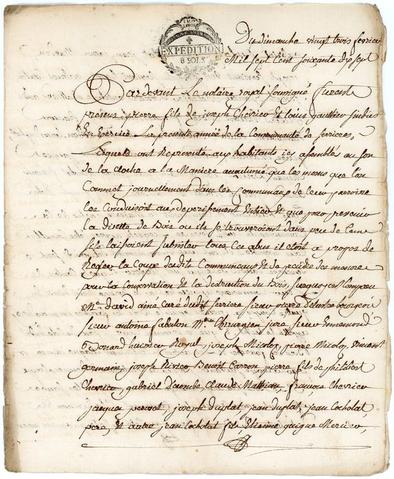 EXPEDITIONS
8 SOLS
Du dimanche vingt trois fevrier
Mil sept cent soixante dix sept
Par devant Le notaire royal soussigné furent
presens pierre fils de joseph Chevrier et Louis gautier sindics
en exercice La presente année de la Communauté de
Lesquels ont representé aux habitants icy assemblés au son
de la cloche a la Maniere accoutumé que les menus que l'on
Commet journellement dans les Communaux de cette paroisse
Les Conduiront au deperissement Entier et que pour prevenir
La disette de Bois ou ils se trouveroient dans peu de tems
s'ils laissoient subsister tous ces abus il etoit a propos de
Regler la Coupe desdits Communaux et de prendre des mesures
pour la Conservation et la des Bois,
Mre david ainé curé dudit sieur pierre bourgeois
sieur antoine
Durand huissier Royal, joseph Micolos, pierre Micolos, vincent
germain, joseph Benoit Carron, pierre fils de philibert
Chevrier gabriel Claude Mathieu, françois Chevrier
jacques joseph duplat, jean duplat, jean Cocholat
pere, et autre jean Cocholat fils, Etienne guigue Mercier,